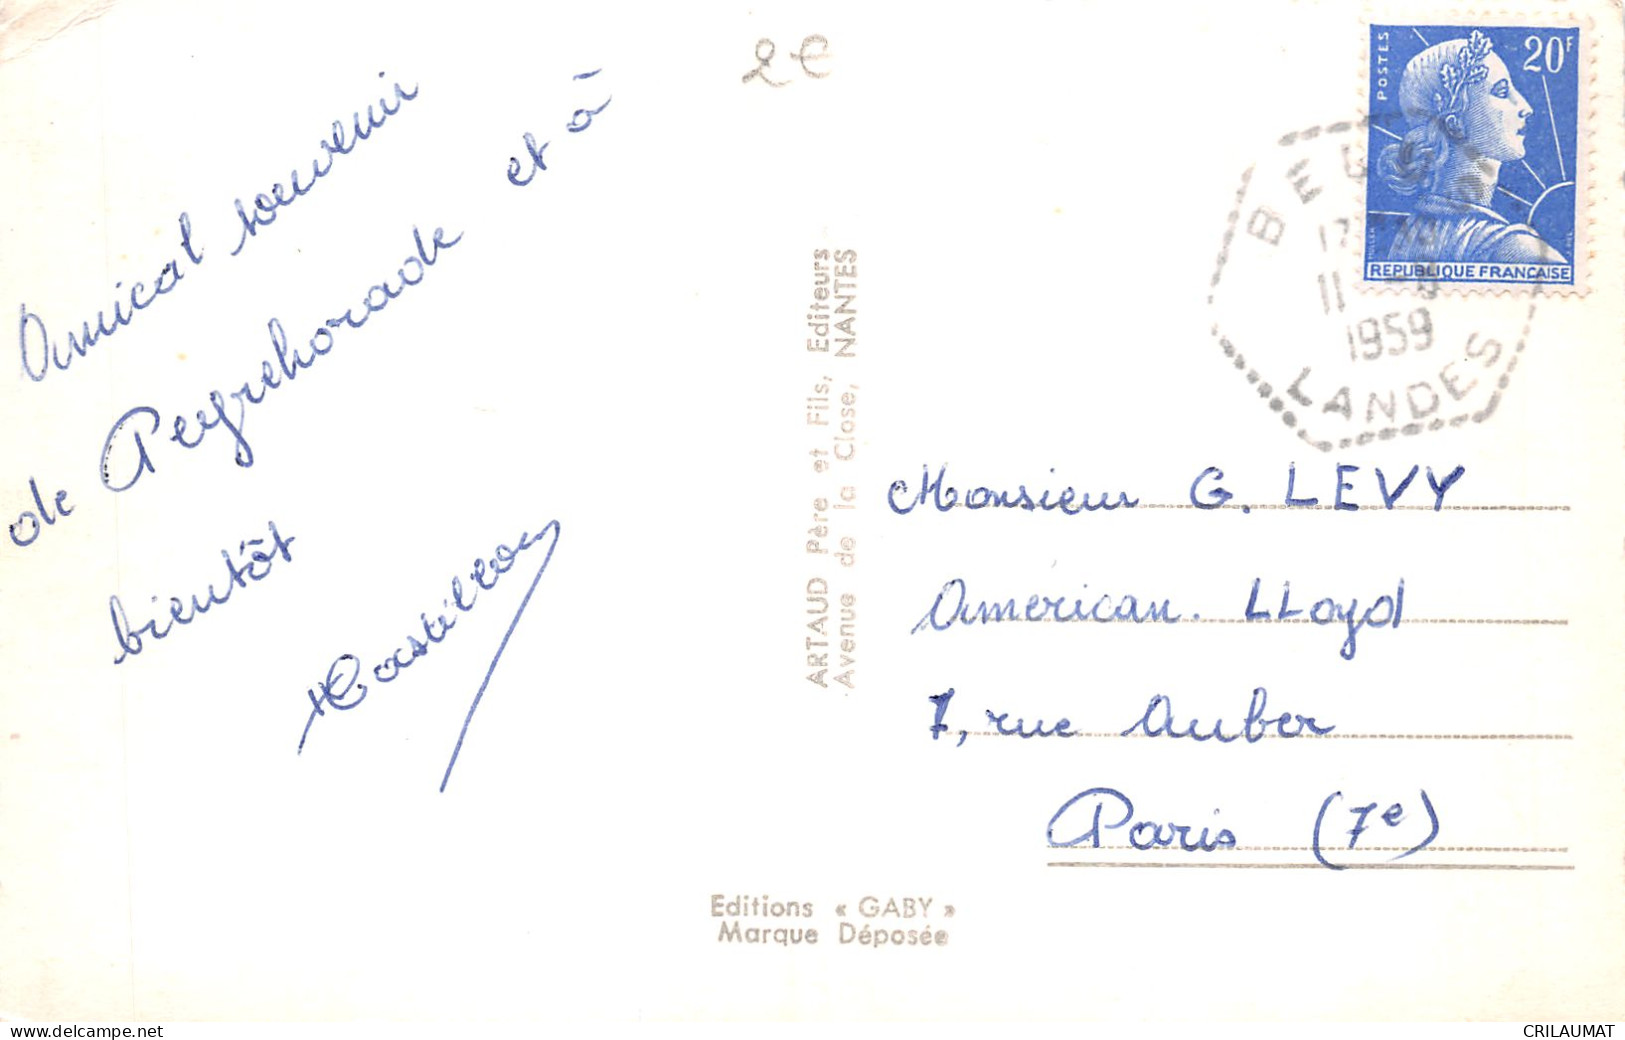 2€
Amical souvenir
de Peyrehorade et à
bientôt
ARTAUD Père et Fils, Editeurs
Avenue de la Close, NANTES
POSTES
20F
REPUBLIQUE FRANÇAISE
1959
LANDES
Monsieur G. LEVY
American. LLoyd
7, rue Auber
Paris (7e)
Editions « GABY »
Marque Déposée
www.delcampe.net
CRILAUMAT